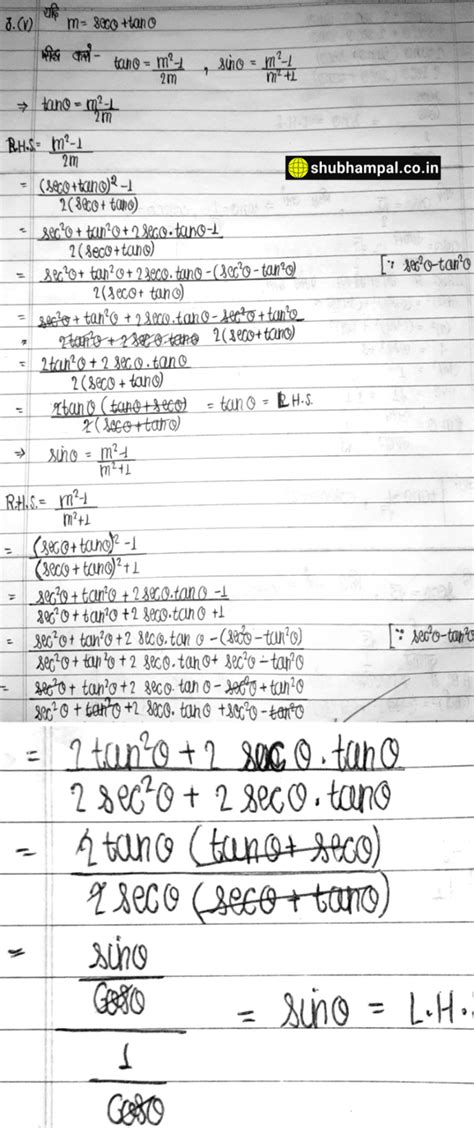 8.(V) यदि m = secθ + tanθ
सिद्ध करो- tanθ = m²-1/2m , sinθ = m²-1/m²+1
⇒ tanθ = m²-1/2m
R.H.S. = m²-1/2m
shubhampal.co.in
= (secθ+tanθ)²-1/2(secθ+tanθ)
= sec²θ + tan²θ + 2secθ.tanθ-1/2(secθ+tanθ)
= sec²θ + tan²θ + 2secθ.tanθ - (sec²θ-tan²θ)/2(secθ+tanθ) [∵ sec²θ-tan²θ
= sec²θ + tan²θ + 2secθ.tanθ - sec²θ + tan²θ/2tan²θ + 2secθ tanθ 2(secθ+tanθ)
= 2tan²θ + 2secθ.tanθ/2(secθ + tanθ)
= 2tanθ (tanθ+secθ)/2(secθ+tanθ) = tanθ = L.H.S.
⇒ sinθ = m²-1/m²+1
R.H.S. = m²-1/m²+1
= (secθ+tanθ)²-1/(secθ+tanθ)²+1
= sec²θ + tan²θ + 2secθ.tanθ -1/sec²θ + tan²θ + 2secθ.tanθ +1
= sec²θ + tan²θ + 2 secθ.tanθ -(sec²θ-tan²θ)/sec²θ + tan²θ + 2 secθ.tanθ + sec²θ - tan²θ [∵ sec²θ-tan²θ
= sec²θ + tan²θ + 2 secθ.tanθ - sec²θ + tan²θ/sec²θ + tan²θ + 2 secθ.tanθ + sec²θ - tan²θ
= 2tan²θ + 2 secθ.tanθ/2sec²θ + 2secθ.tanθ
= 2tanθ (tanθ+secθ)/2secθ (secθ+tanθ)
= sinθ/cosθ / 1/cosθ = sinθ = L.H.